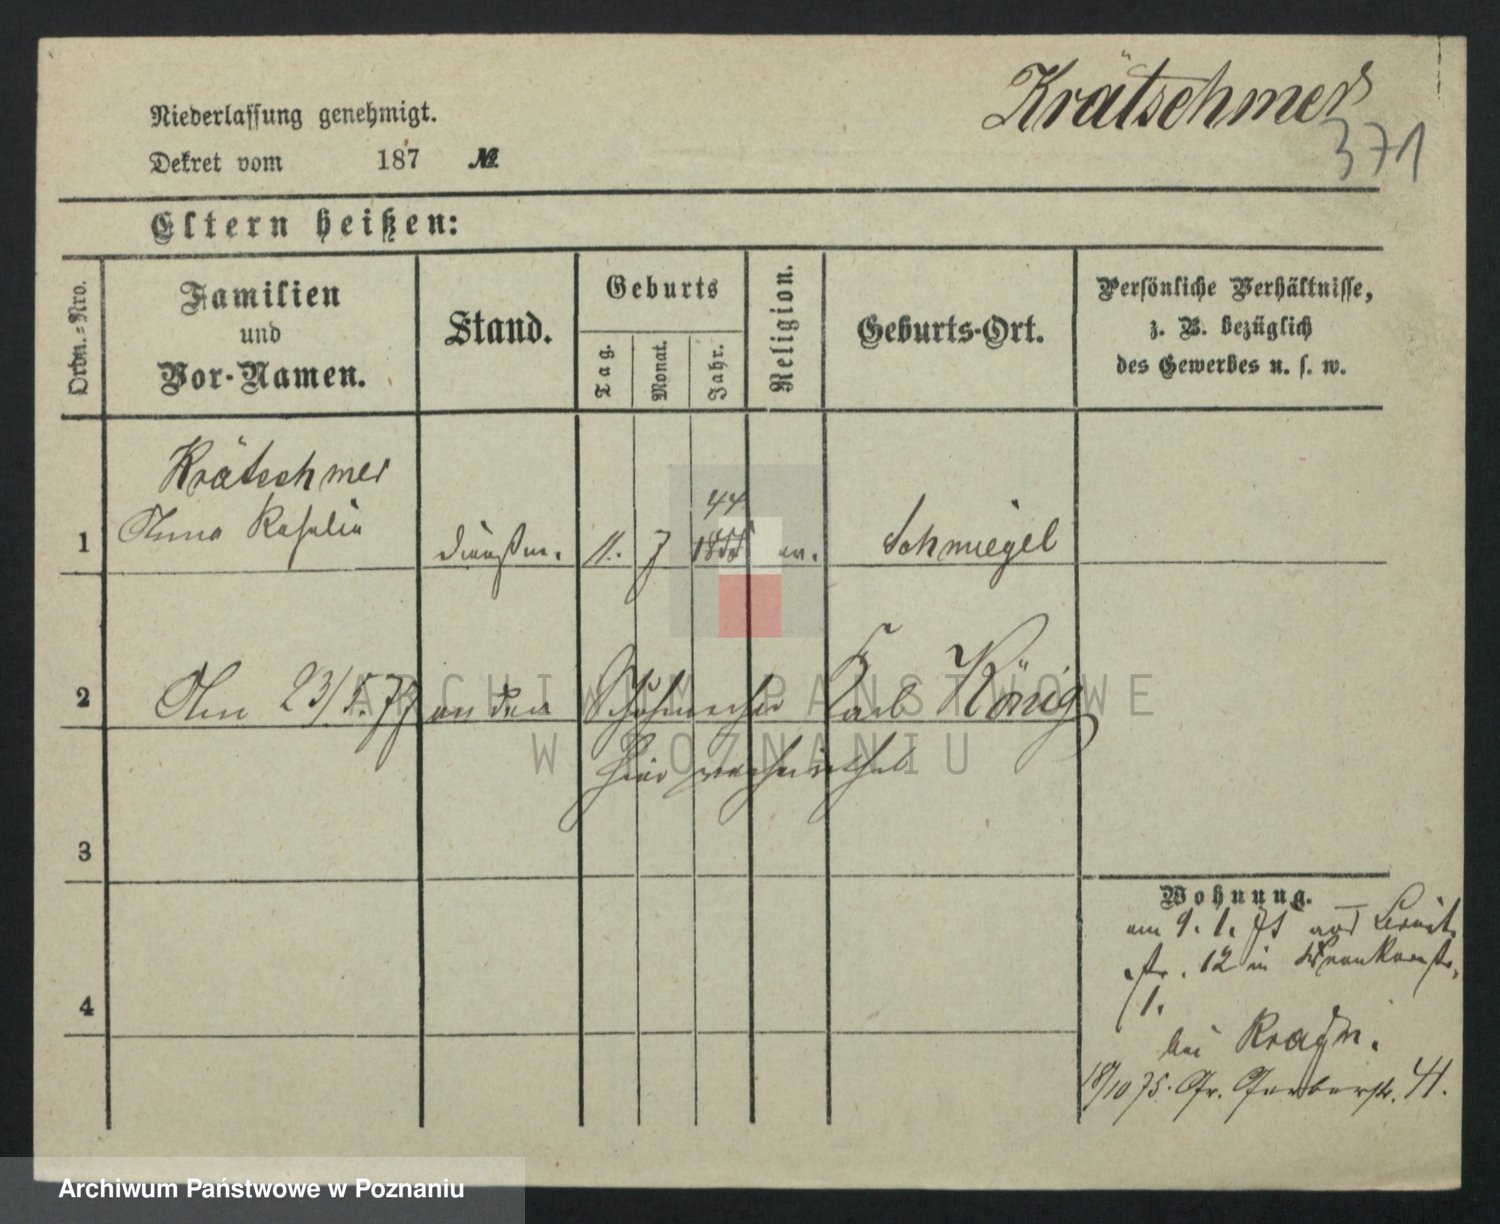 Krätschmer
371
Niederlassung genehmigt.
Dekret vom 187 №.
Eltern heißen:
Ordn.-Nro.
Familien
und
Vor-Namen.
Stand.
Geburts
Tag.
Monat.
Jahr.
Religion.
Geburts-Ort.
Persönliche Verhältnisse,
z. B. bezüglich
des Gewerbes u. s. w.
Krätschmer
44
1 Anna Rosalia dienstm. 11. 7 1855 ev. Schmiegel
2 Am 23/5. 77 an den Schuhmacher Karl König
hier verheirathet
3
4
Wohnung.
am 9. 1. 75 aus
str. 12 in
1.
bei
18/10 75. Gr. Gerberstr. 41.
ARCHIWUM PAŃSTWOWE
W POZNANIU
Archiwum Państwowe w Poznaniu